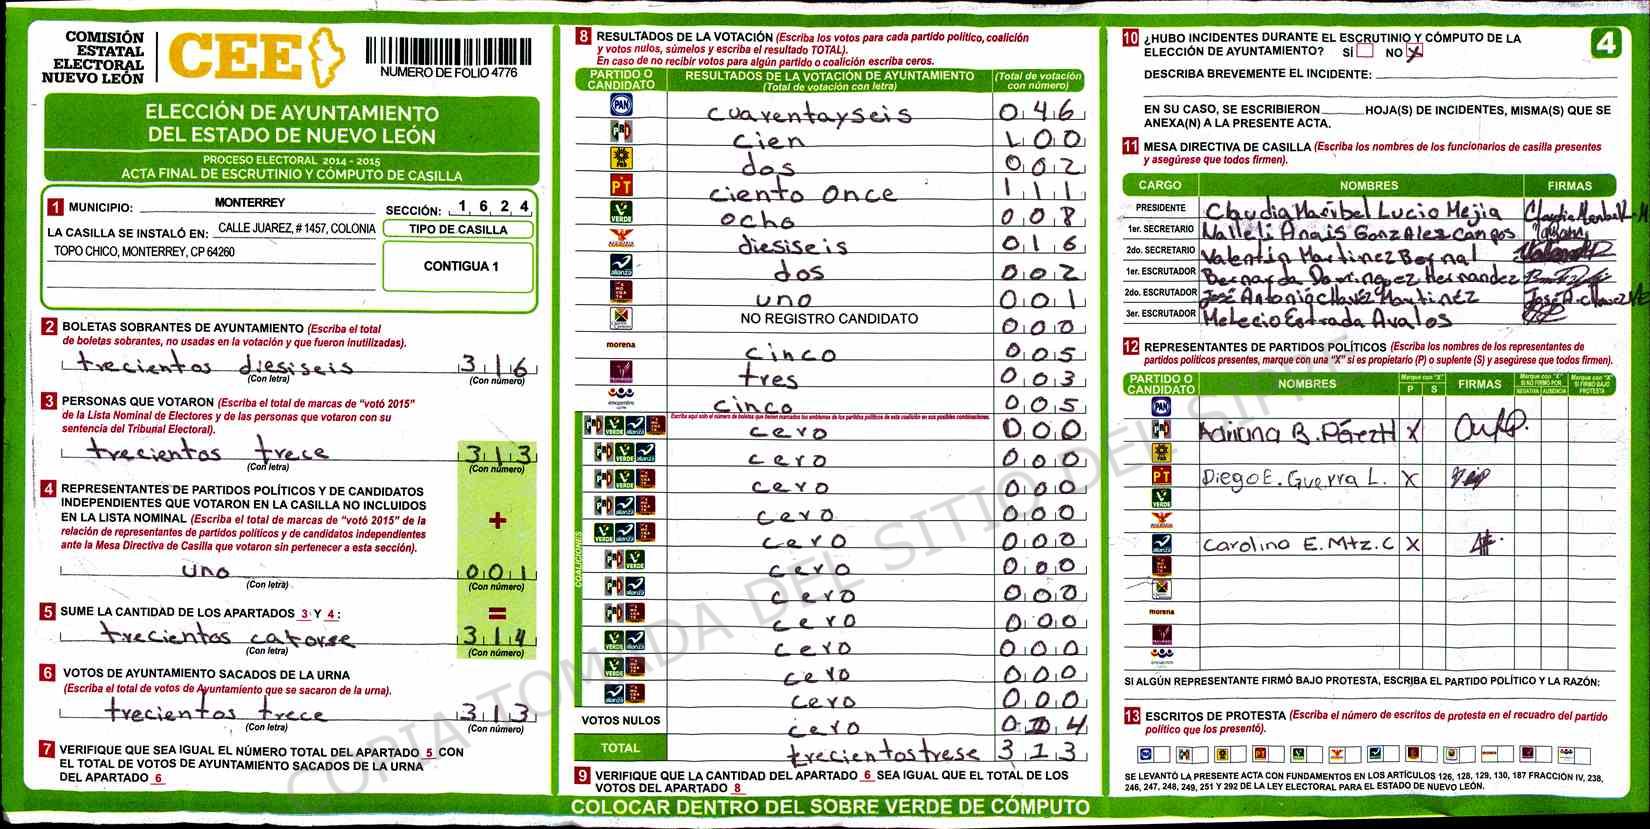 COMISIÓN
ESTATAL
ELECTORAL
NUEVO LEÓN
CEE
NUMERO DE FOLIO 4776
ELECCIÓN DE AYUNTAMIENTO
DEL ESTADO DE NUEVO LEÓN
PROCESO ELECTORAL 2014 - 2015
ACTA FINAL DE ESCRUTINIO Y CÓMPUTO DE CASILLA
1 MUNICIPIO: MONTERREY SECCIÓN: 1 6 2 4
LA CASILLA SE INSTALÓ EN: CALLE JUAREZ, # 1457, COLONIA
TOPO CHICO, MONTERREY, CP 64260
TIPO DE CASILLA
CONTIGUA 1
2 BOLETAS SOBRANTES DE AYUNTAMIENTO (Escriba el total
de boletas sobrantes, no usadas en la votación y que fueron inutilizadas).
trecientos diesiseis 3 1 6
(Con letra) (Con número)
3 PERSONAS QUE VOTARON (Escriba el total de marcas de "votó 2015"
de la Lista Nominal de Electores y de las personas que votaron con su
sentencia del Tribunal Electoral).
trecientos trece 3 1 3
(Con letra) (Con número)
4 REPRESENTANTES DE PARTIDOS POLÍTICOS Y DE CANDIDATOS
INDEPENDIENTES QUE VOTARON EN LA CASILLA NO INCLUIDOS
EN LA LISTA NOMINAL (Escriba el total de marcas de "votó 2015" de la
relación de representantes de partidos políticos y de candidatos independientes
ante la Mesa Directiva de Casilla que votaron sin pertenecer a esta sección).
+
uno 0 0 1
(Con letra) (Con número)
5 SUME LA CANTIDAD DE LOS APARTADOS 3 Y 4 :
=
trecientos catorse 3 1 4
(Con letra) (Con número)
6 VOTOS DE AYUNTAMIENTO SACADOS DE LA URNA
(Escriba el total de votos de Ayuntamiento que se sacaron de la urna).
trecientos trece 3 1 3
(Con letra) (Con número)
7 VERIFIQUE QUE SEA IGUAL EL NÚMERO TOTAL DEL APARTADO 5 CON
EL TOTAL DE VOTOS DE AYUNTAMIENTO SACADOS DE LA URNA
DEL APARTADO 6
8 RESULTADOS DE LA VOTACIÓN (Escriba los votos para cada partido político, coalición
y votos nulos, súmelos y escriba el resultado TOTAL).
En caso de no recibir votos para algún partido o coalición escriba ceros.
PARTIDO O CANDIDATO RESULTADOS DE LA VOTACIÓN DE AYUNTAMIENTO (Total de votación con letra) (Total de votación con número)
PAN cuarentayseis 0 4 6
PRD cien 1 0 0
PRD dos 0 0 2
PT ciento once 1 1 1
VERDE ocho 0 0 8
diesiseis 0 1 6
alianza dos 0 0 2
uno 0 0 1
NO REGISTRO CANDIDATO 0 0 0
morena cinco 0 0 5
tres 0 0 3
encuentro cinco 0 0 5
COALICIONES
Escriba aquí solo el número de boletas que tienen marcados los emblemas de los partidos políticos de esta coalición en sus posibles combinaciones.
cero 0 0 0
cero 0 0 0
cero 0 0 0
cero 0 0 0
cero 0 0 0
cero 0 0 0
cero 0 0 0
cero 0 0 0
cero 0 0 0
cero 0 0 0
cero 0 0 0
VOTOS NULOS cero 0 4
TOTAL trecientostrese 3 1 3
9 VERIFIQUE QUE LA CANTIDAD DEL APARTADO 6 SEA IGUAL QUE EL TOTAL DE LOS
VOTOS DEL APARTADO 8
COLOCAR DENTRO DEL SOBRE VERDE DE CÓMPUTO
10 ¿HUBO INCIDENTES DURANTE EL ESCRUTINIO Y CÓMPUTO DE LA
ELECCIÓN DE AYUNTAMIENTO? SÍ NO X
4
DESCRIBA BREVEMENTE EL INCIDENTE:
EN SU CASO, SE ESCRIBIERON HOJA(S) DE INCIDENTES, MISMA(S) QUE SE
ANEXA(N) A LA PRESENTE ACTA.
11 MESA DIRECTIVA DE CASILLA (Escriba los nombres de los funcionarios de casilla presentes
y asegúrese que todos firmen).
CARGO NOMBRES FIRMAS
PRESIDENTE Claudia Maribel Lucio Mejia
1er. SECRETARIO Nalleli Anais Gonzales Campos
2do. SECRETARIO Valentin Martinez Bernal
1er. ESCRUTADOR Bernarda Dominguez Hernandez
2do. ESCRUTADOR José Antonio Chavéz Martinez
3er. ESCRUTADOR Melecio Estrada Avalos
12 REPRESENTANTES DE PARTIDOS POLÍTICOS (Escriba los nombres de los representantes de
partidos políticos presentes, marque con una "X" si es propietario (P) o suplente (S) y asegúrese que todos firmen).
PARTIDO O CANDIDATO NOMBRES Marque con "X" P S FIRMAS Marque con "X" SI NO FIRMÓ POR NEGATIVA AUSENCIA Marque con "X" SI FIRMÓ BAJO PROTESTA
PAN
Adriana B. Pérez H X
PT Diego E. Guerra L. X
VERDE
alianza Carolina E. Mtz. C X
morena
encuentro
SI ALGÚN REPRESENTANTE FIRMÓ BAJO PROTESTA, ESCRIBA EL PARTIDO POLÍTICO Y LA RAZÓN:
13 ESCRITOS DE PROTESTA (Escriba el número de escritos de protesta en el recuadro del partido
político que los presentó).
SE LEVANTÓ LA PRESENTE ACTA CON FUNDAMENTOS EN LOS ARTÍCULOS 126, 128, 129, 130, 187 FRACCIÓN IV, 238,
246, 247, 248, 249, 251 Y 292 DE LA LEY ELECTORAL PARA EL ESTADO DE NUEVO LEÓN.
COPIA TOMADA DEL SITIO DEL SIPRE